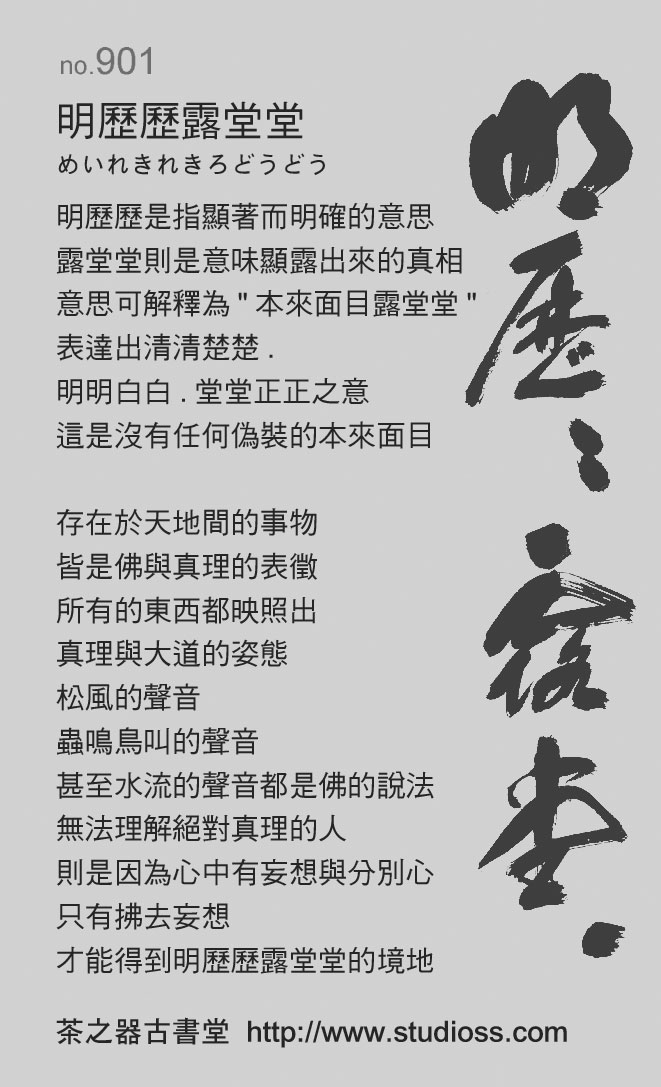 no.901
明歷歷露堂堂
めいれきれきろどうどう
明歷歷是指顯著而明確的意思
露堂堂則是意味顯露出來的真相
意思可解釋為 " 本來面目露堂堂 "
表達出清清楚楚 .
明明白白 . 堂堂正正之意
這是沒有任何偽裝的本來面目
存在於天地間的事物
皆是佛與真理的表徵
所有的東西都映照出
真理與大道的姿態
松風的聲音
蟲鳴鳥叫的聲音
甚至水流的聲音都是佛的說法
無法理解絕對真理的人
則是因為心中有妄想與分別心
只有拂去妄想
才能得到明歷歷露堂堂的境地
茶之器古書堂 http://www.studioss.com
明歷々露堂々